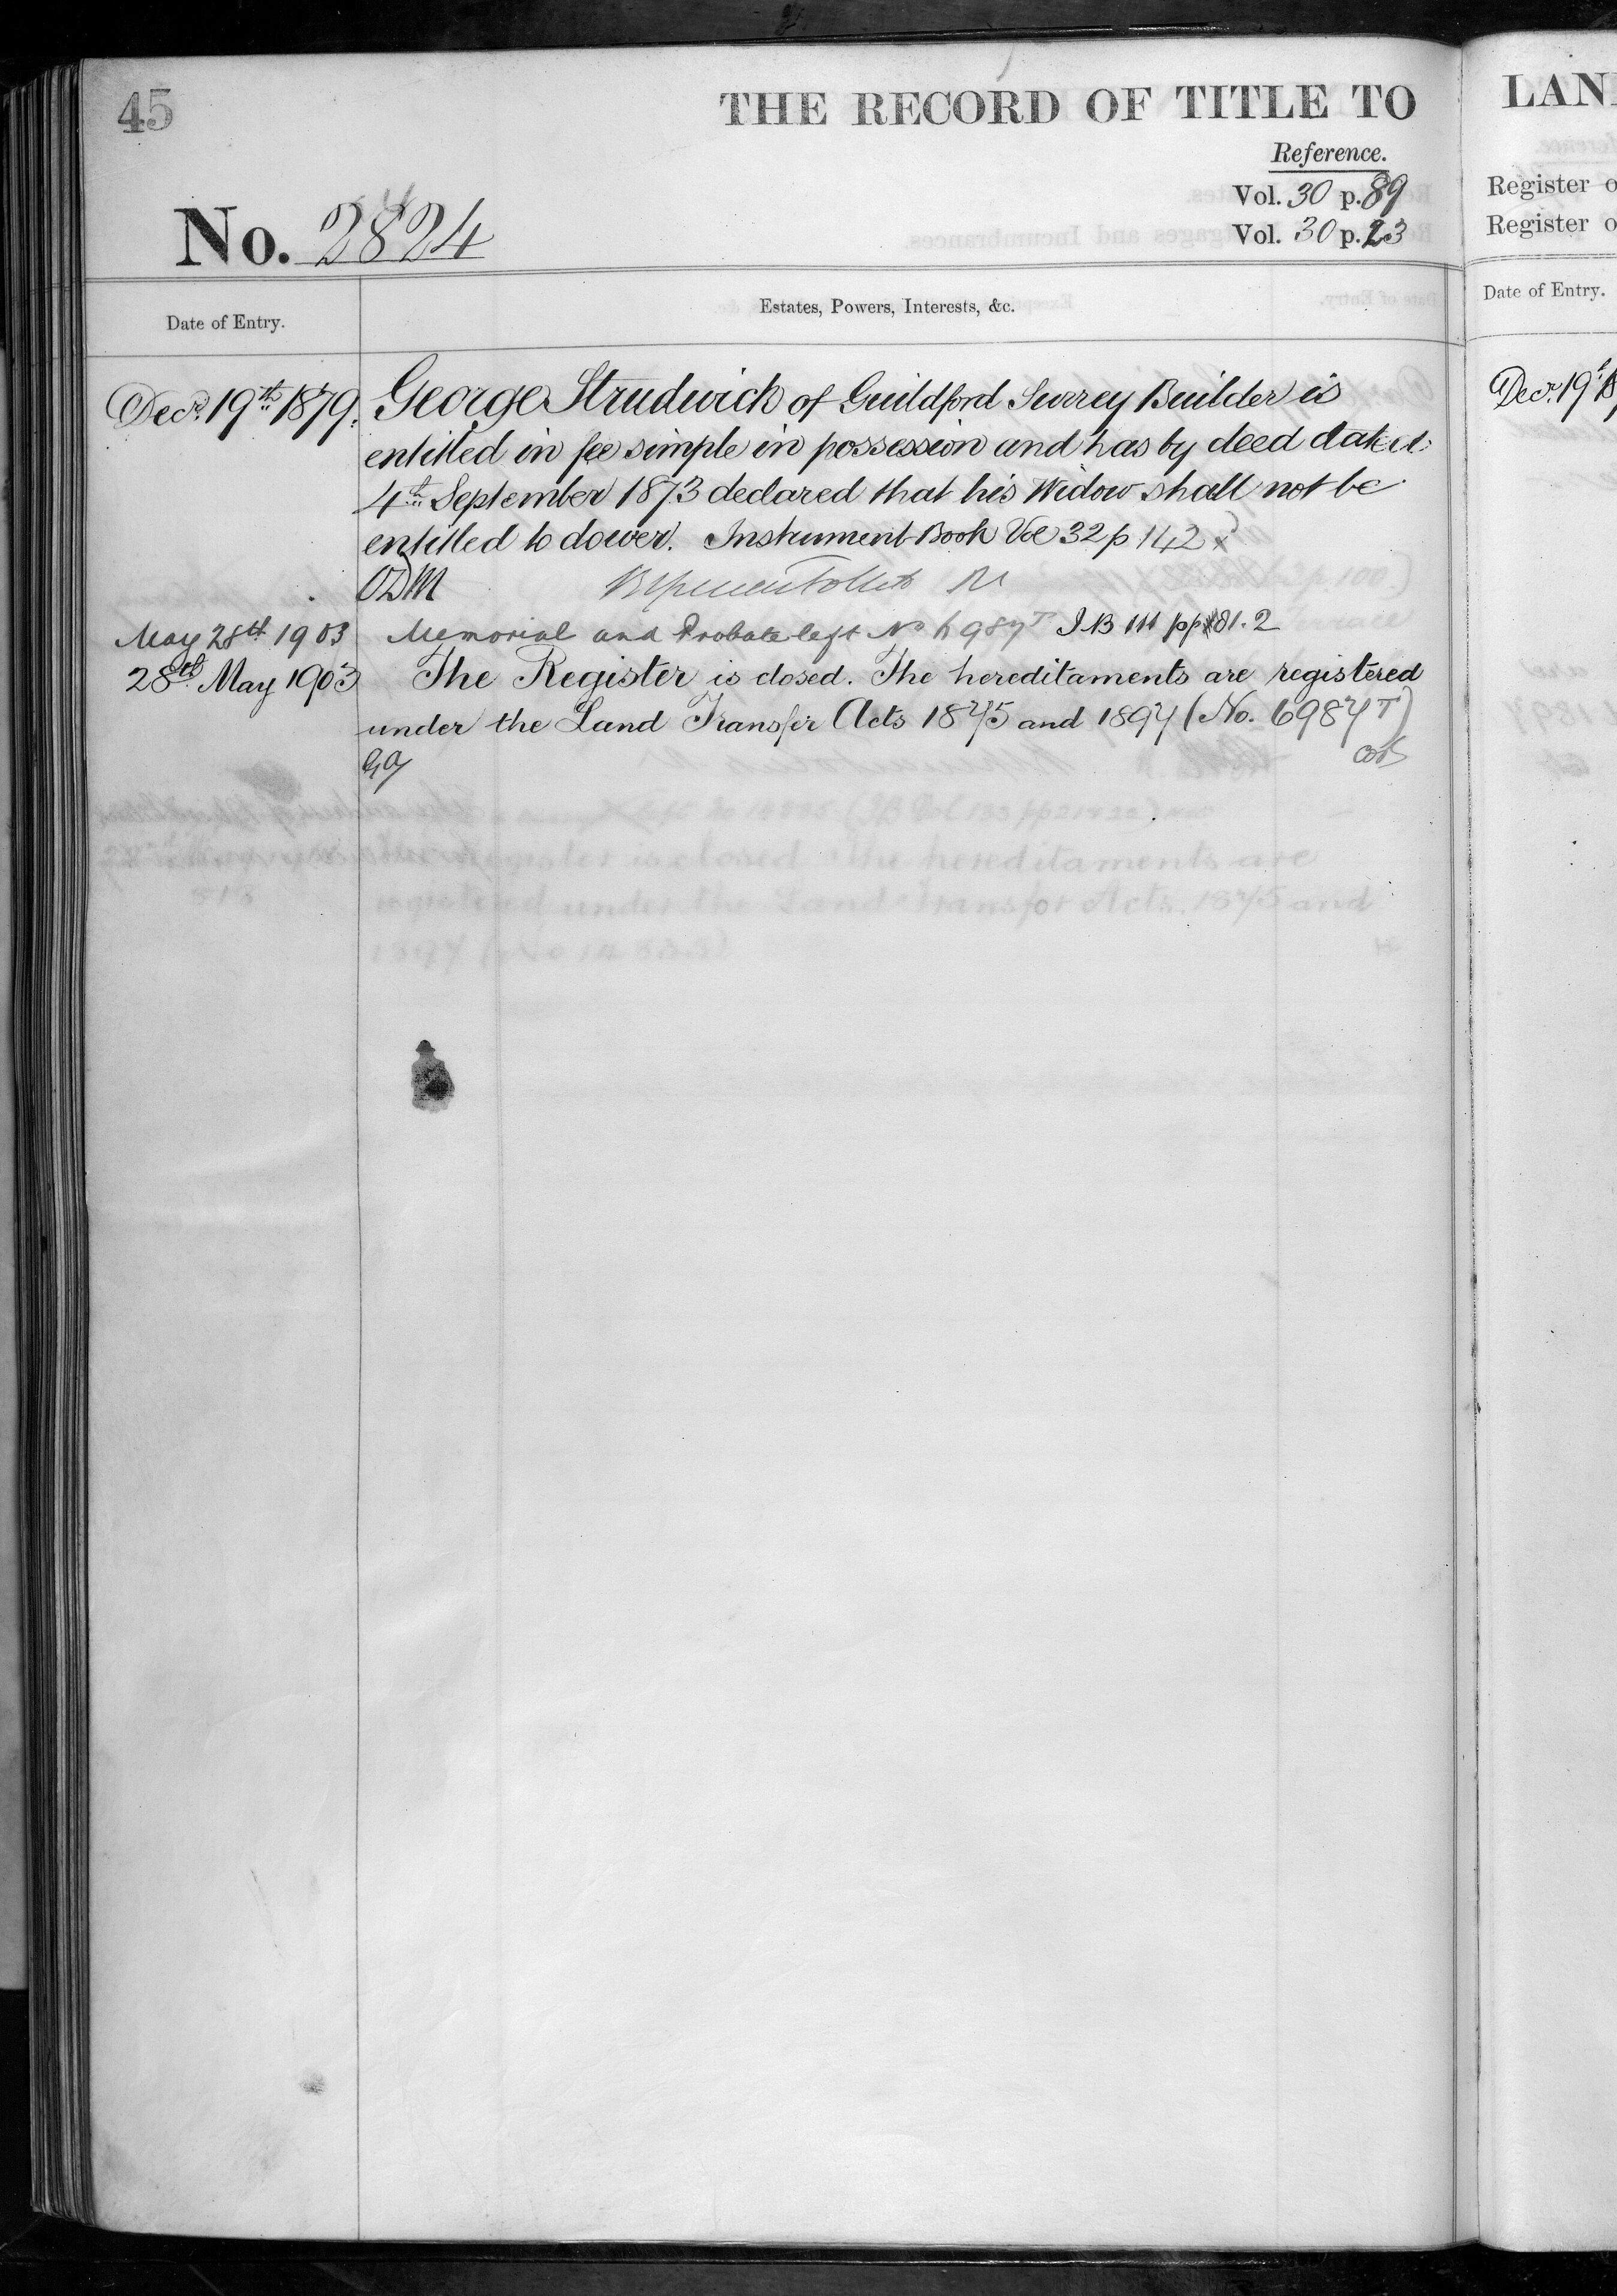 45
THE RECORD OF TITLE TO
Reference.
Vol. 30 p. 89
Vol. 30 p. 23
No. 2824
Date of Entry.
Estates, Powers, Interests, &c.
Decr. 19th 1879. George Strudwick of Guildford Surrey Builder is
entitled in fee simple in possession and has by deed dated
4th September 1873 declared that his Widow shall not be
entitled to dower. Instrument Book Vol 32 p 142
ODM
May 28th 1903 Memorial and Probate left No 6987T I B 111 pp 181.2
28th May 1903 The Register is closed. The hereditaments are registered
under the Land Transfer Acts 1875 and 1897 (No. 6987T)
LAN
Register o
Register o
Date of Entry.
Decr. 19th 18